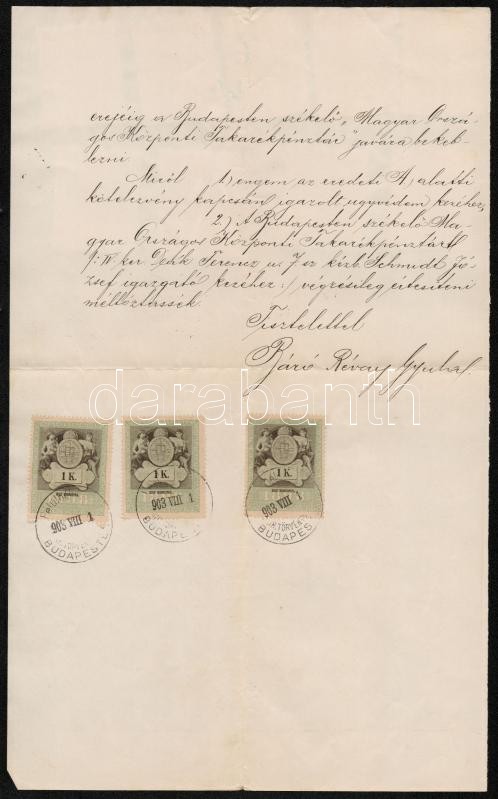 erejéig a Budapesten székelő "Magyar Orszá-
gos Központi Takarékpénztár" javára bekeb-
lezni.
Miről 1) engem az eredeti A) alatti
kötelezvény kapcsán igazolt ügyvédem kezéhez,
2.) A Budapesten székelő Ma-
gyar Országos Központi Takarékpénztárt
/: IV. ker Deák Ferencz u. 7 sz kézb. Schmidt Jó-
zsef igazgató kezéhez :/ végzésileg értesíteni
méltóztassék.
Tisztelettel
Báró Révay Gyula
darabanth
1 K.
1 K.
1 K.
903 VIII 1
903 VIII 1
903 VIII 1
BUDAPEST
BUDAPEST
BUDAPEST